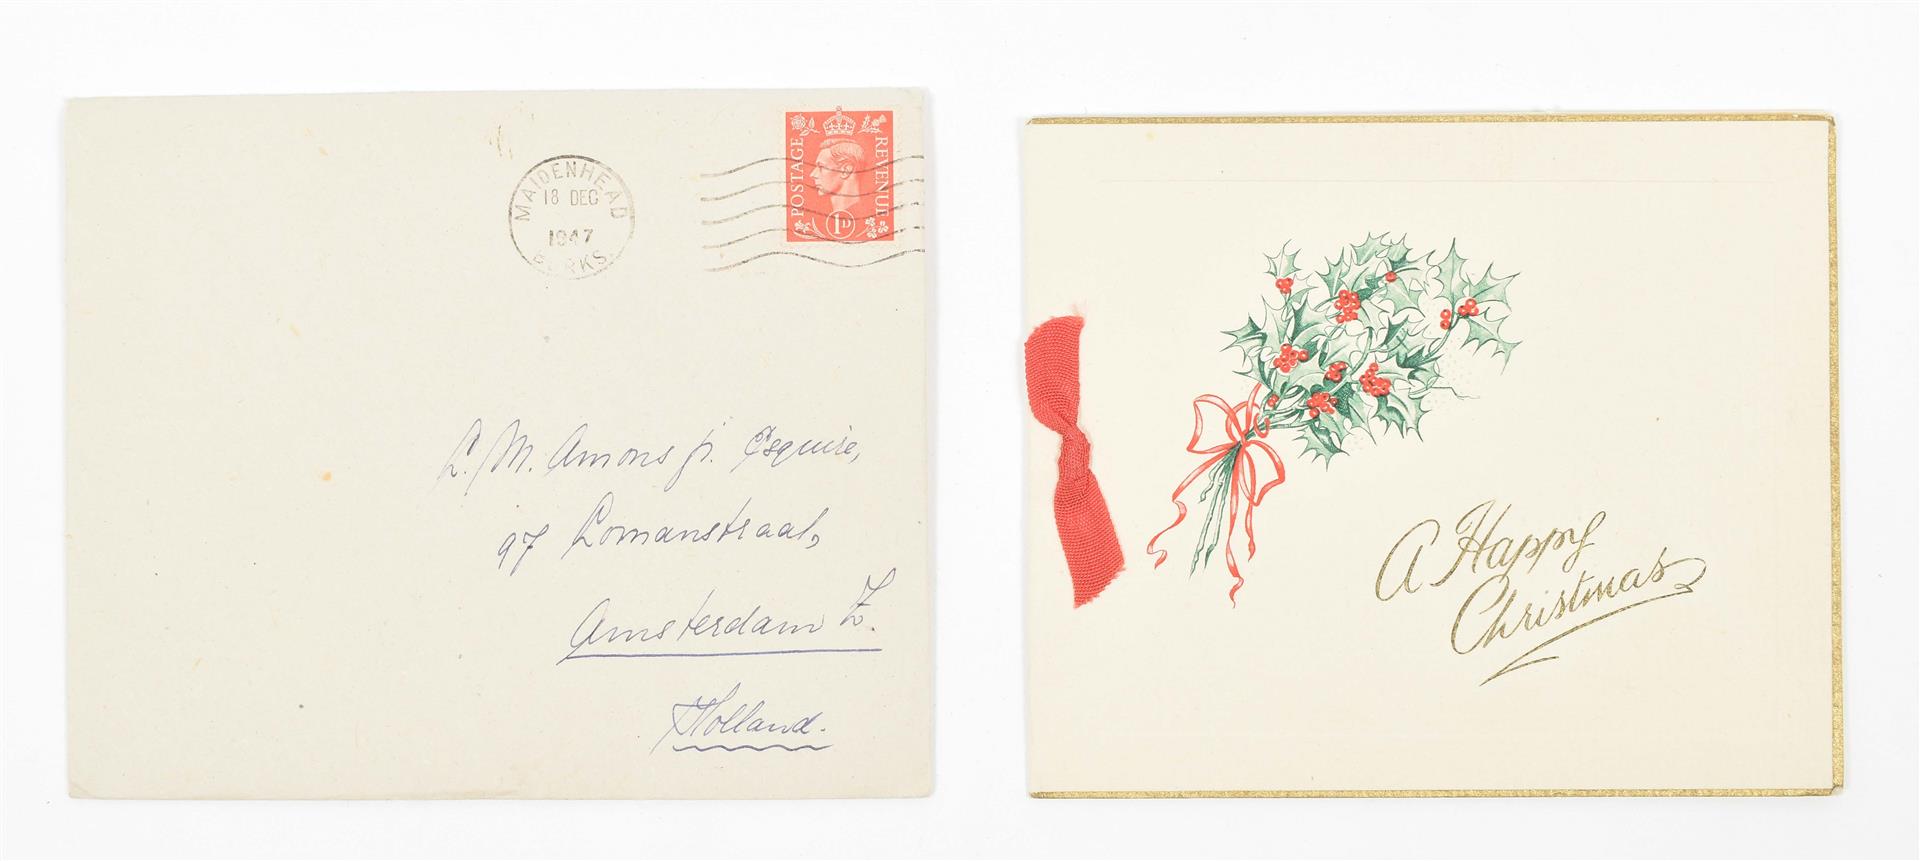 MAIDENHEAD
18 DEC
1947
BERKS.
POSTAGE
REVENUE
1D
L. M. Amons jr. Esquire,
97 Lomanstraat,
Amsterdam Z.
Holland.
A Happy
Christmas